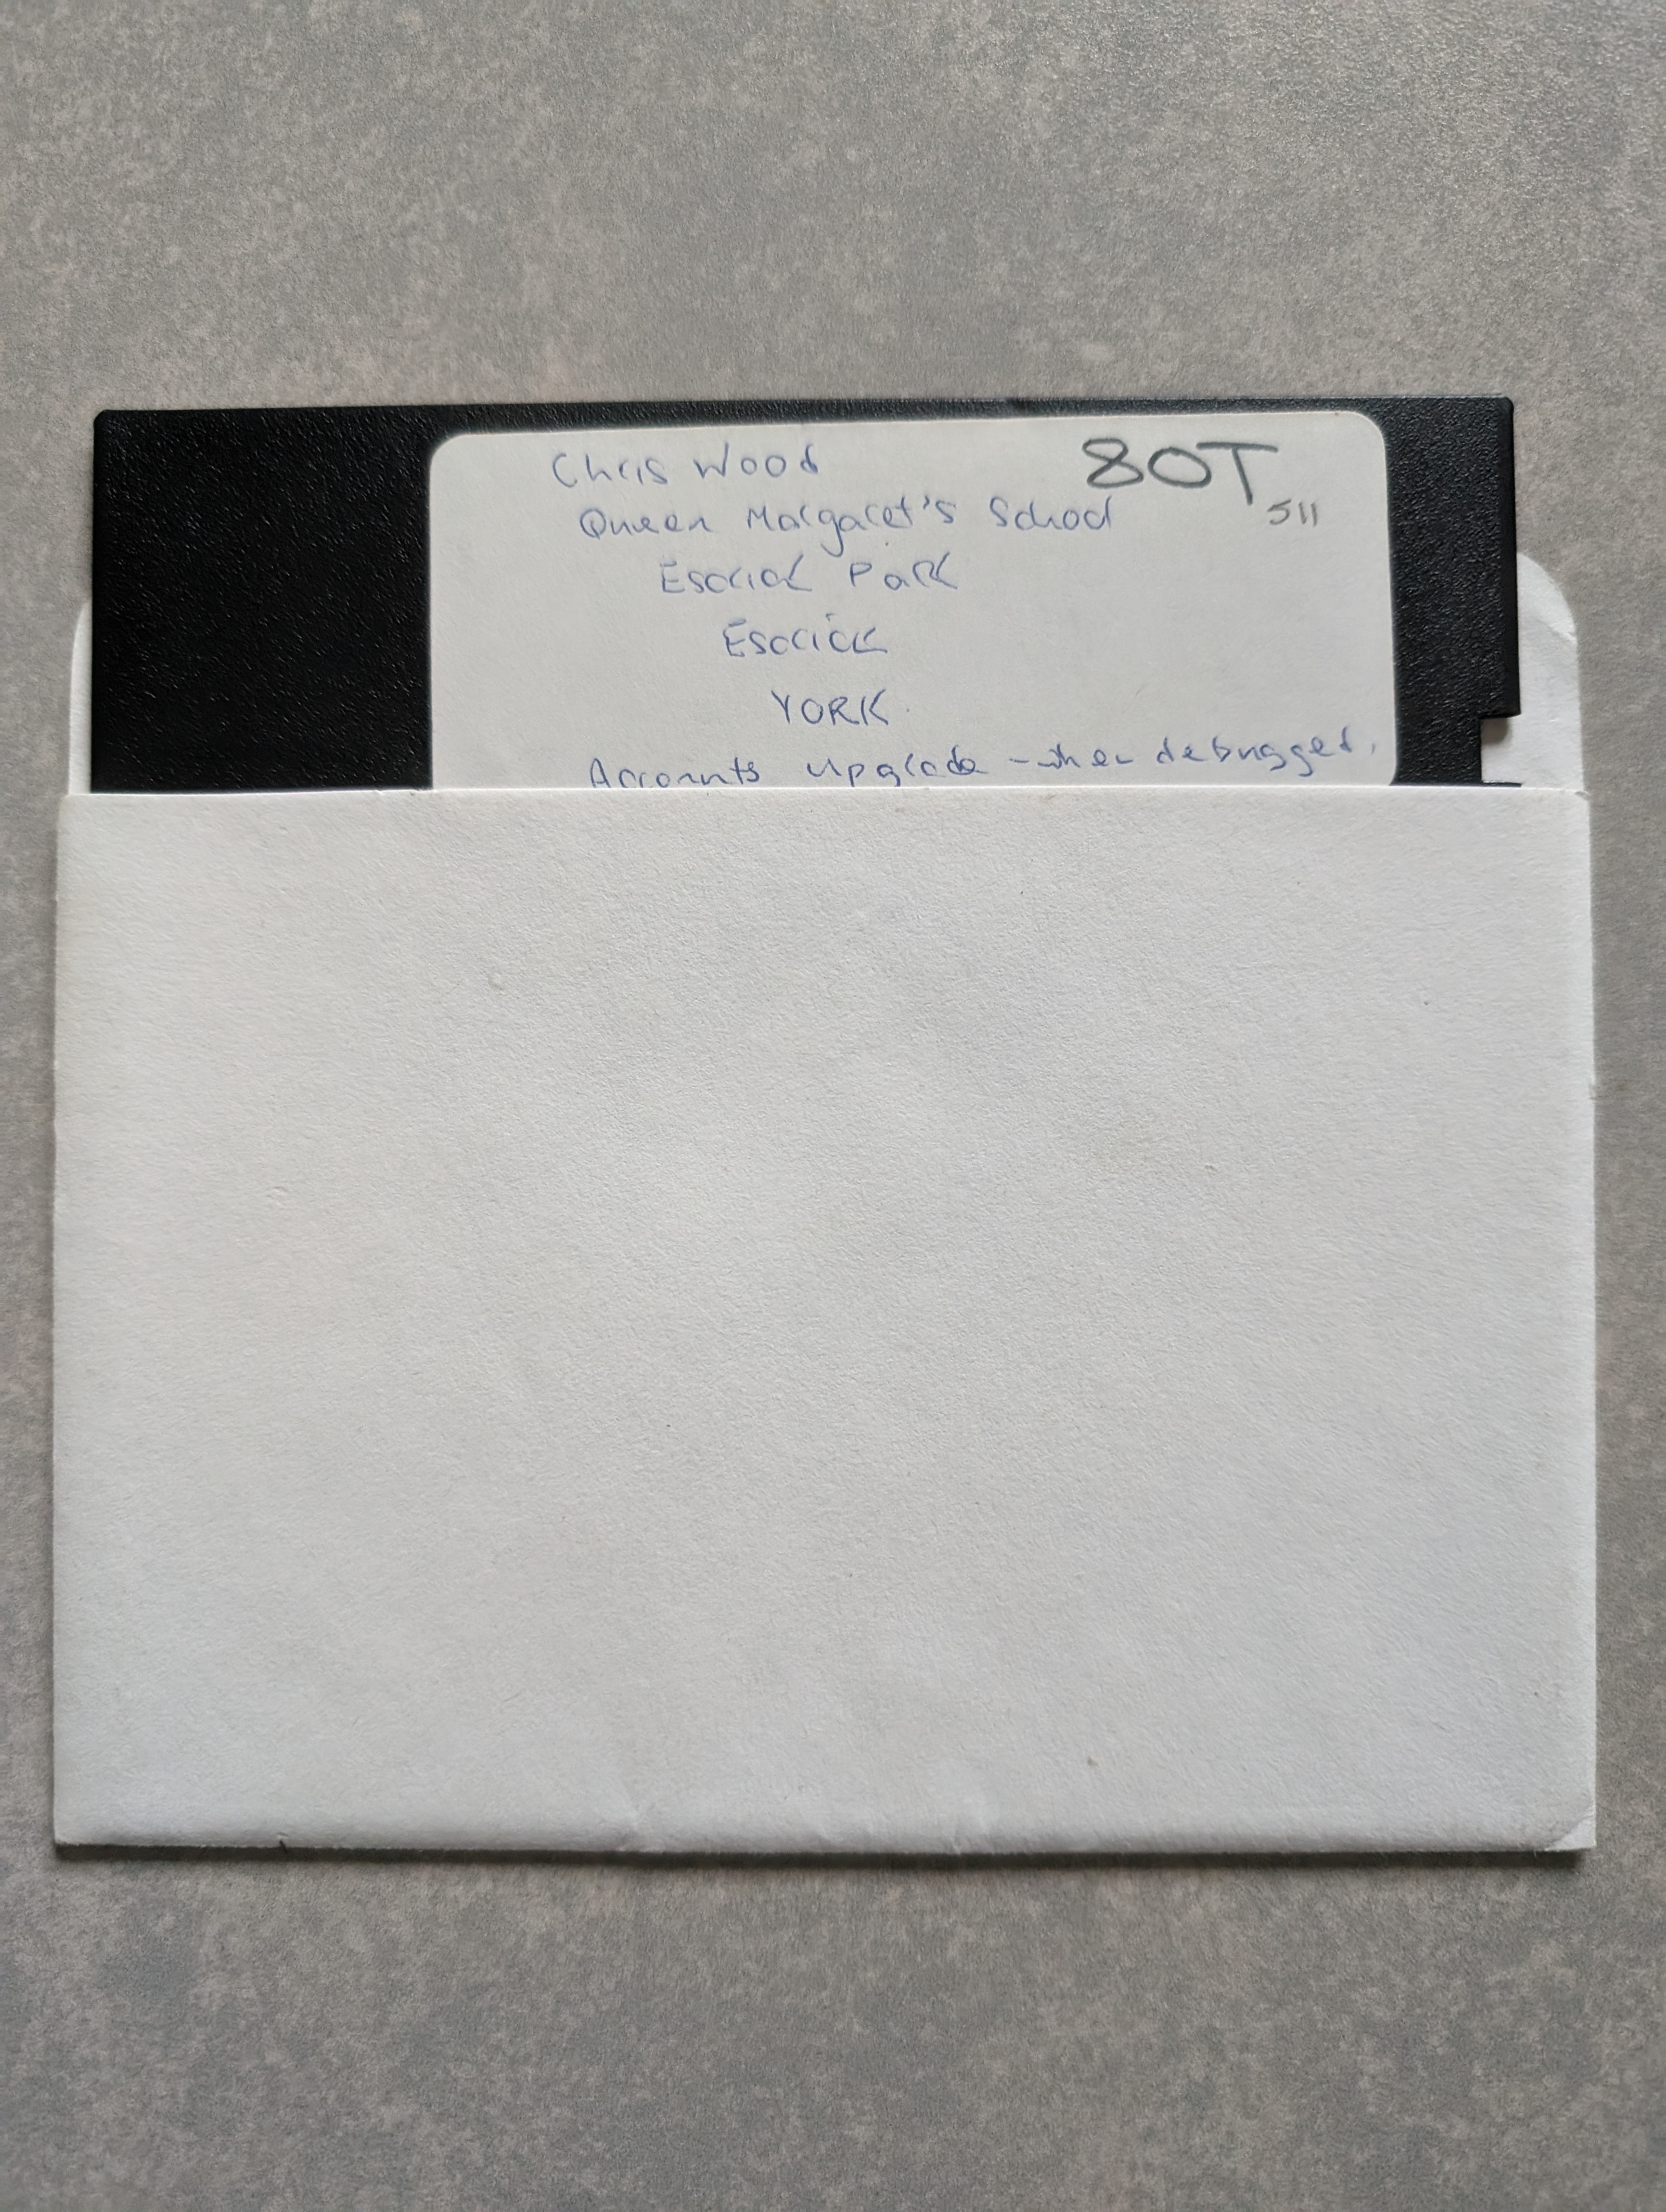 Chris Wood
80T
Queen Margaret's School
511
Escrick Park
Escrick
YORK
Accounts Upgrade - when debugged.